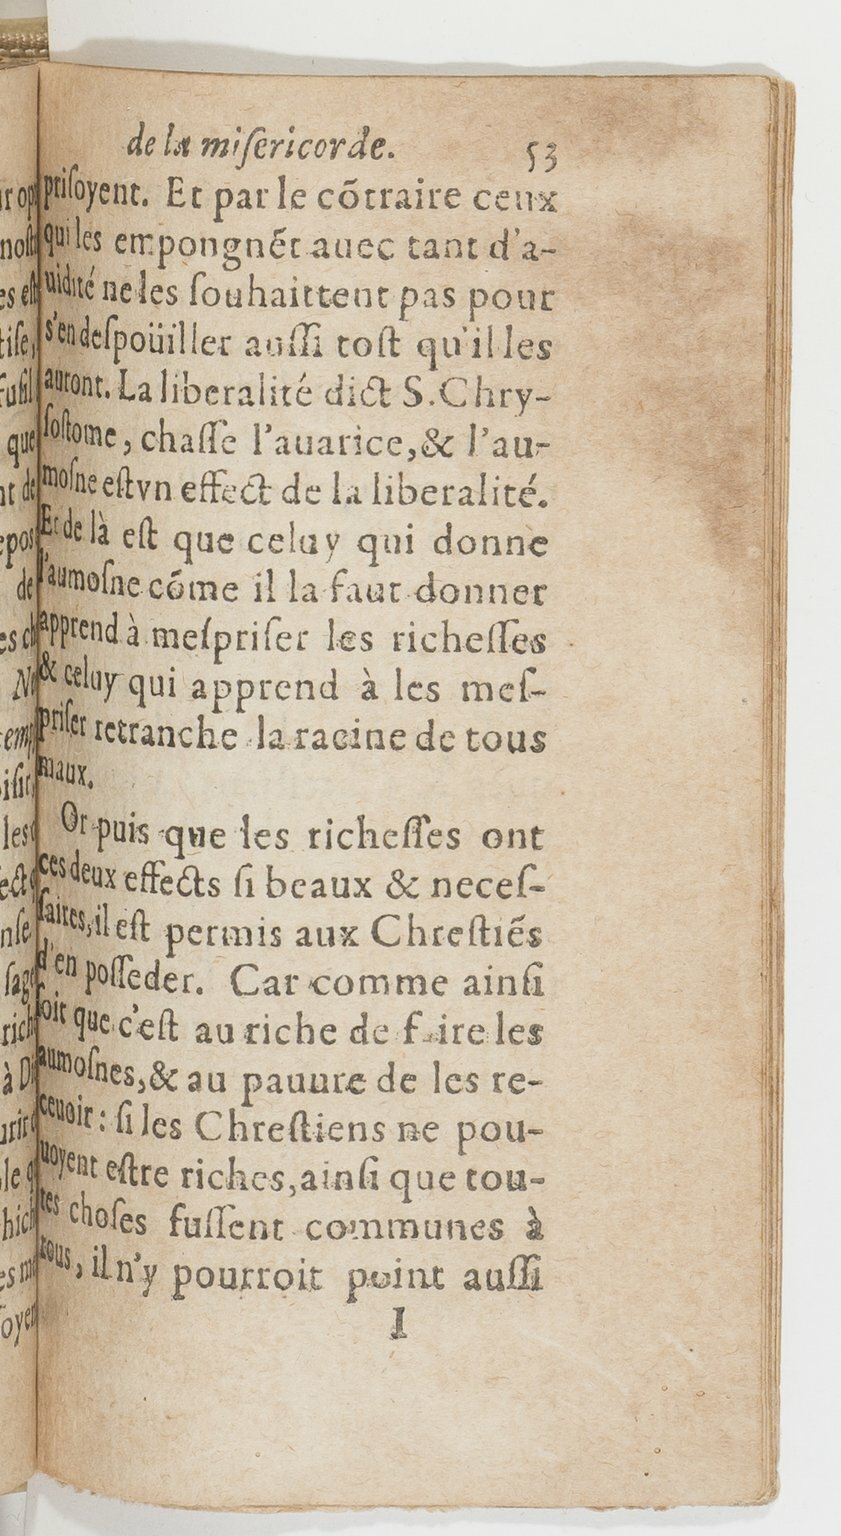 de la miſericorde. 53
priſoyent. Et par le cõtraire ceux
qui les empongnẽt auec tant d'a-
uidité ne les ſouhaittent pas pour
s'en deſpoüiller auſſi toſt qu'il les
auront. La liberalité dict S. Chry-
ſoſtome, chaſſe l'auarice, & l'au-
moſne eſt vn effect de la liberalité.
Et de là eſt que celuy qui donne
l'aumoſne cõme il la faut donner
apprend à meſpriſer les richeſſes
& celuy qui apprend à les meſ-
priſer retranche la racine de tous
maux.
Or puis que les richeſſes ont
ces deux effects ſi beaux & neceſ-
ſaires, il eſt permis aux Chreſtiẽs
d'en poſſeder. Car comme ainſi
ſoit que c'eſt au riche de faire les
aumoſnes, & au pauure de les re-
ceuoir : ſi les Chreſtiens ne pou-
uoyent eſtre riches, ainſi que tou-
tes choſes fuſſent communes à
tous, il n'y pourroit point auſſi
I